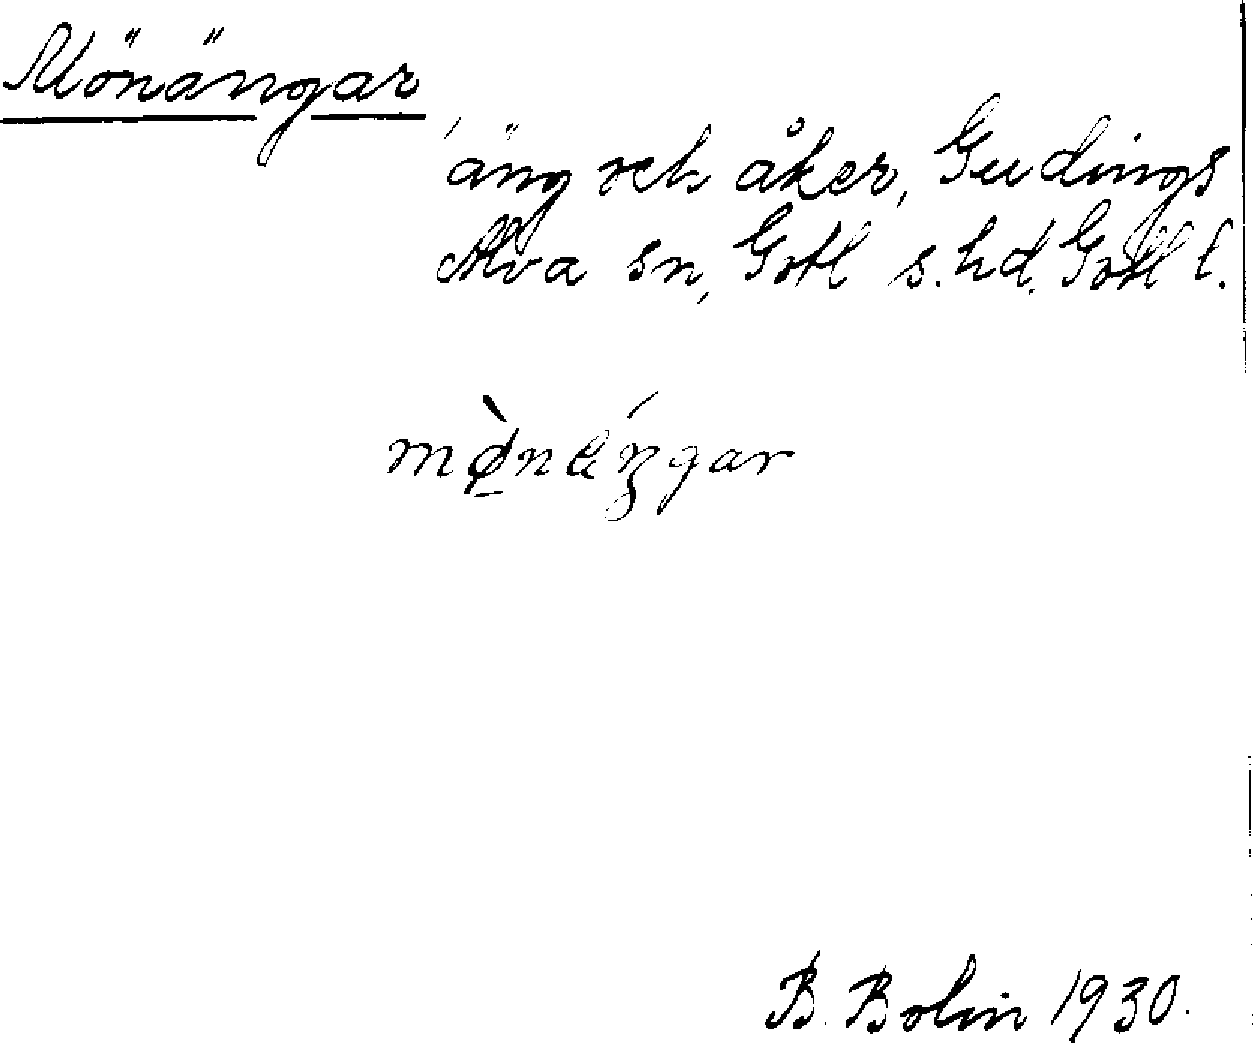 Mönängar
äng och åker, Gudings
Alva sn, Gotl s. hd. Gotl l.
B. Bolin 1930.